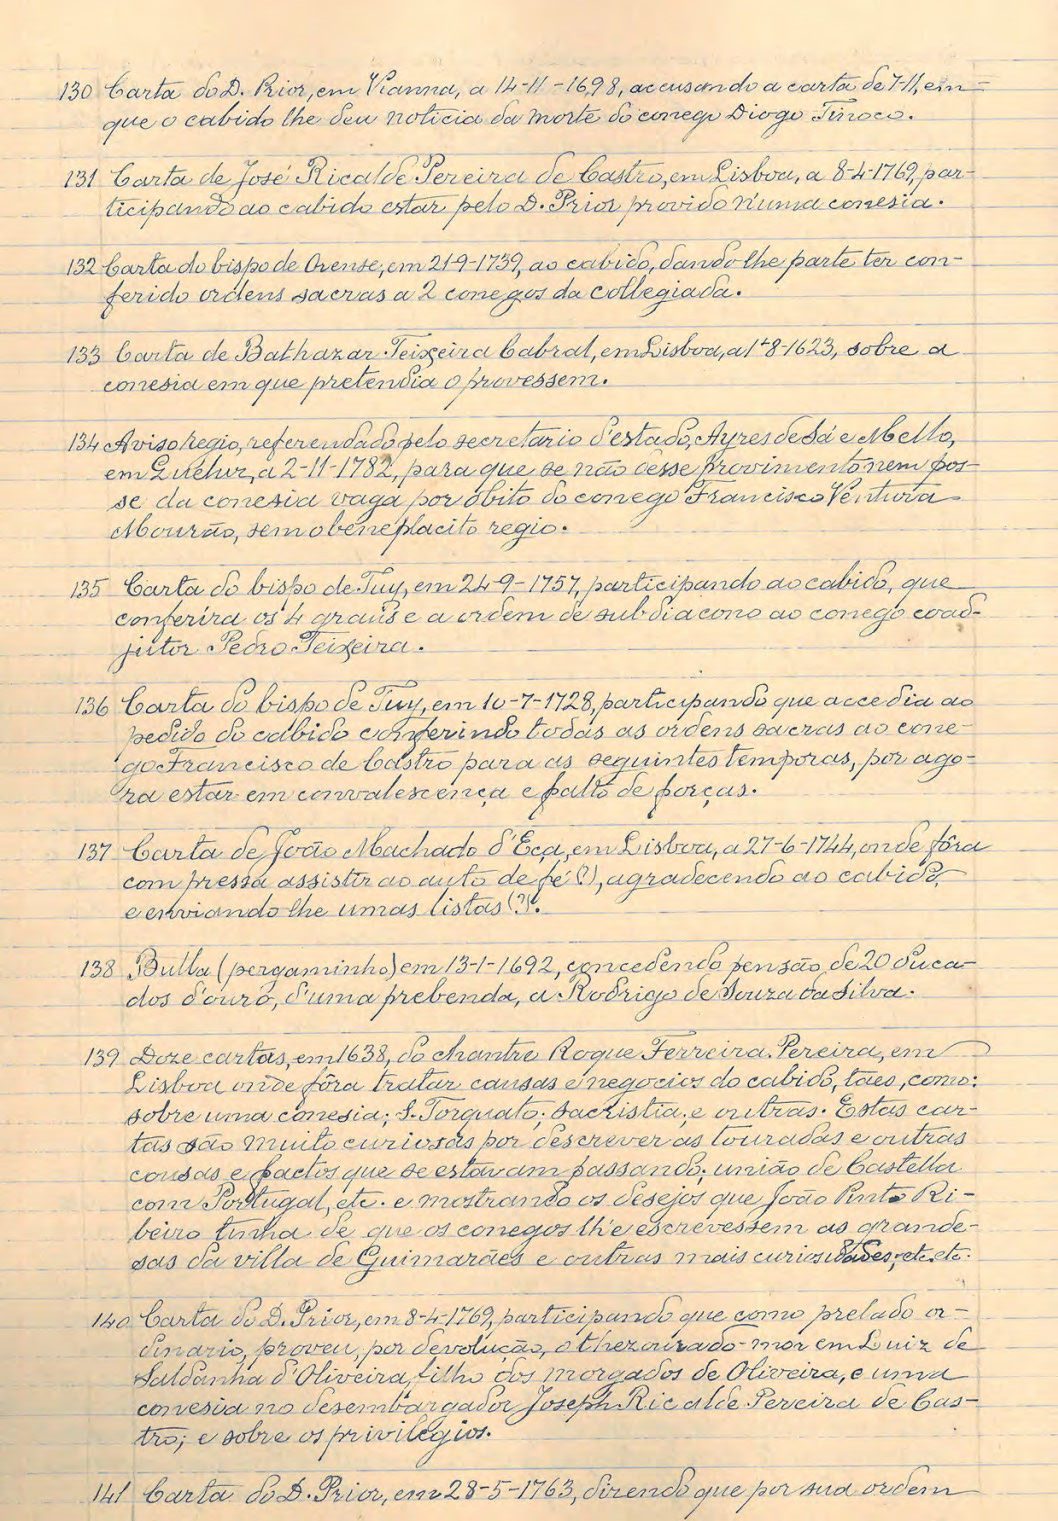 130 Carta do D. Prior, em Vianna, a 14-11-1698, accusando a carta de 7-11, em
que o cabido lhe deu noticia da morte do conego Diogo Tinoco.
131 Carta de José Ricalde Pereira de Castro, em Lisboa, a 8-4-1769, par-
ticipando ao cabido estar pelo D. Prior provido n'uma conesia.
132 Carta do bispo de Orense, em 21-9-1739, ao cabido, dando-lhe parte ter con-
ferido ordens sacras a 2 conegos da collegiada.
133 Carta de Balthazar Teixeira Cabral, em Lisboa, a 1-8-1623, sobre a
conesia em que pretendia o provessem.
134 Aviso regio, referendado pelo secretario d'estado, Ayres de Sá e Mello,
em Queluz, a 2-11-1782, para que se não désse provimento nem pos-
se da conesia vaga por obito do conego Francisco Ventura
Mourão, sem o beneplacito regio.
135 Carta do bispo de Tuy, em 24-9-1757, participando ao cabido, que
conferira os 4 graus e a ordem de subdiacono ao conego coad-
jutor Pedro Teixeira.
136 Carta do bispo de Tuy, em 10-7-1728, participando que accedia ao
pedido do cabido conferindo todas as ordens sacras ao cone-
go Francisco de Castro para as seguintes temporas, por ago-
ra estar em convalescença e falto de forças.
137 Carta de João Machado d'Eça, em Lisboa, a 27-6-1744, onde fôra
com pressa assistir ao auto de fé (?), agradecendo ao cabido,
e enviando lhe umas listas (?).
138 Bulla (pergaminho) em 13-1-1692, concedendo pensão de 20 duca-
dos d'ouro, d'uma prebenda, a Rodrigo de Souza da Silva.
139 Doze cartas, em 1638, do chantre Roque Ferreira Pereira, em
Lisboa onde fôra tratar causas e negocios do cabido, táes, como:
sobre uma conesia; S. Torquato; sacristia; e outras. Estas car-
tas são muito curiosas por descrever as touradas e outras
cousas e factos que se estavam passando; união de Castella
com Portugal, etc. e mostrando os desejos que João Pinto Ri-
beiro tinha de que os conegos lh'e escrevessem as grande-
sas da villa de Guimarães e outras mais curiosidades, etc. etc.
140 Carta do D. Prior, em 8-4-1769, participando que como prelado or-
dinario, proveu, por devolução, o thezourado-mor em Luiz de
Saldanha d'Oliveira, filho dos morgados de Oliveira, e uma
conesia no desembargador Joseph Ricalde Pereira de Cas-
tro; e sobre os privilegios.
141 Carta do D. Prior, em 28-5-1763, dizendo que por sua ordem